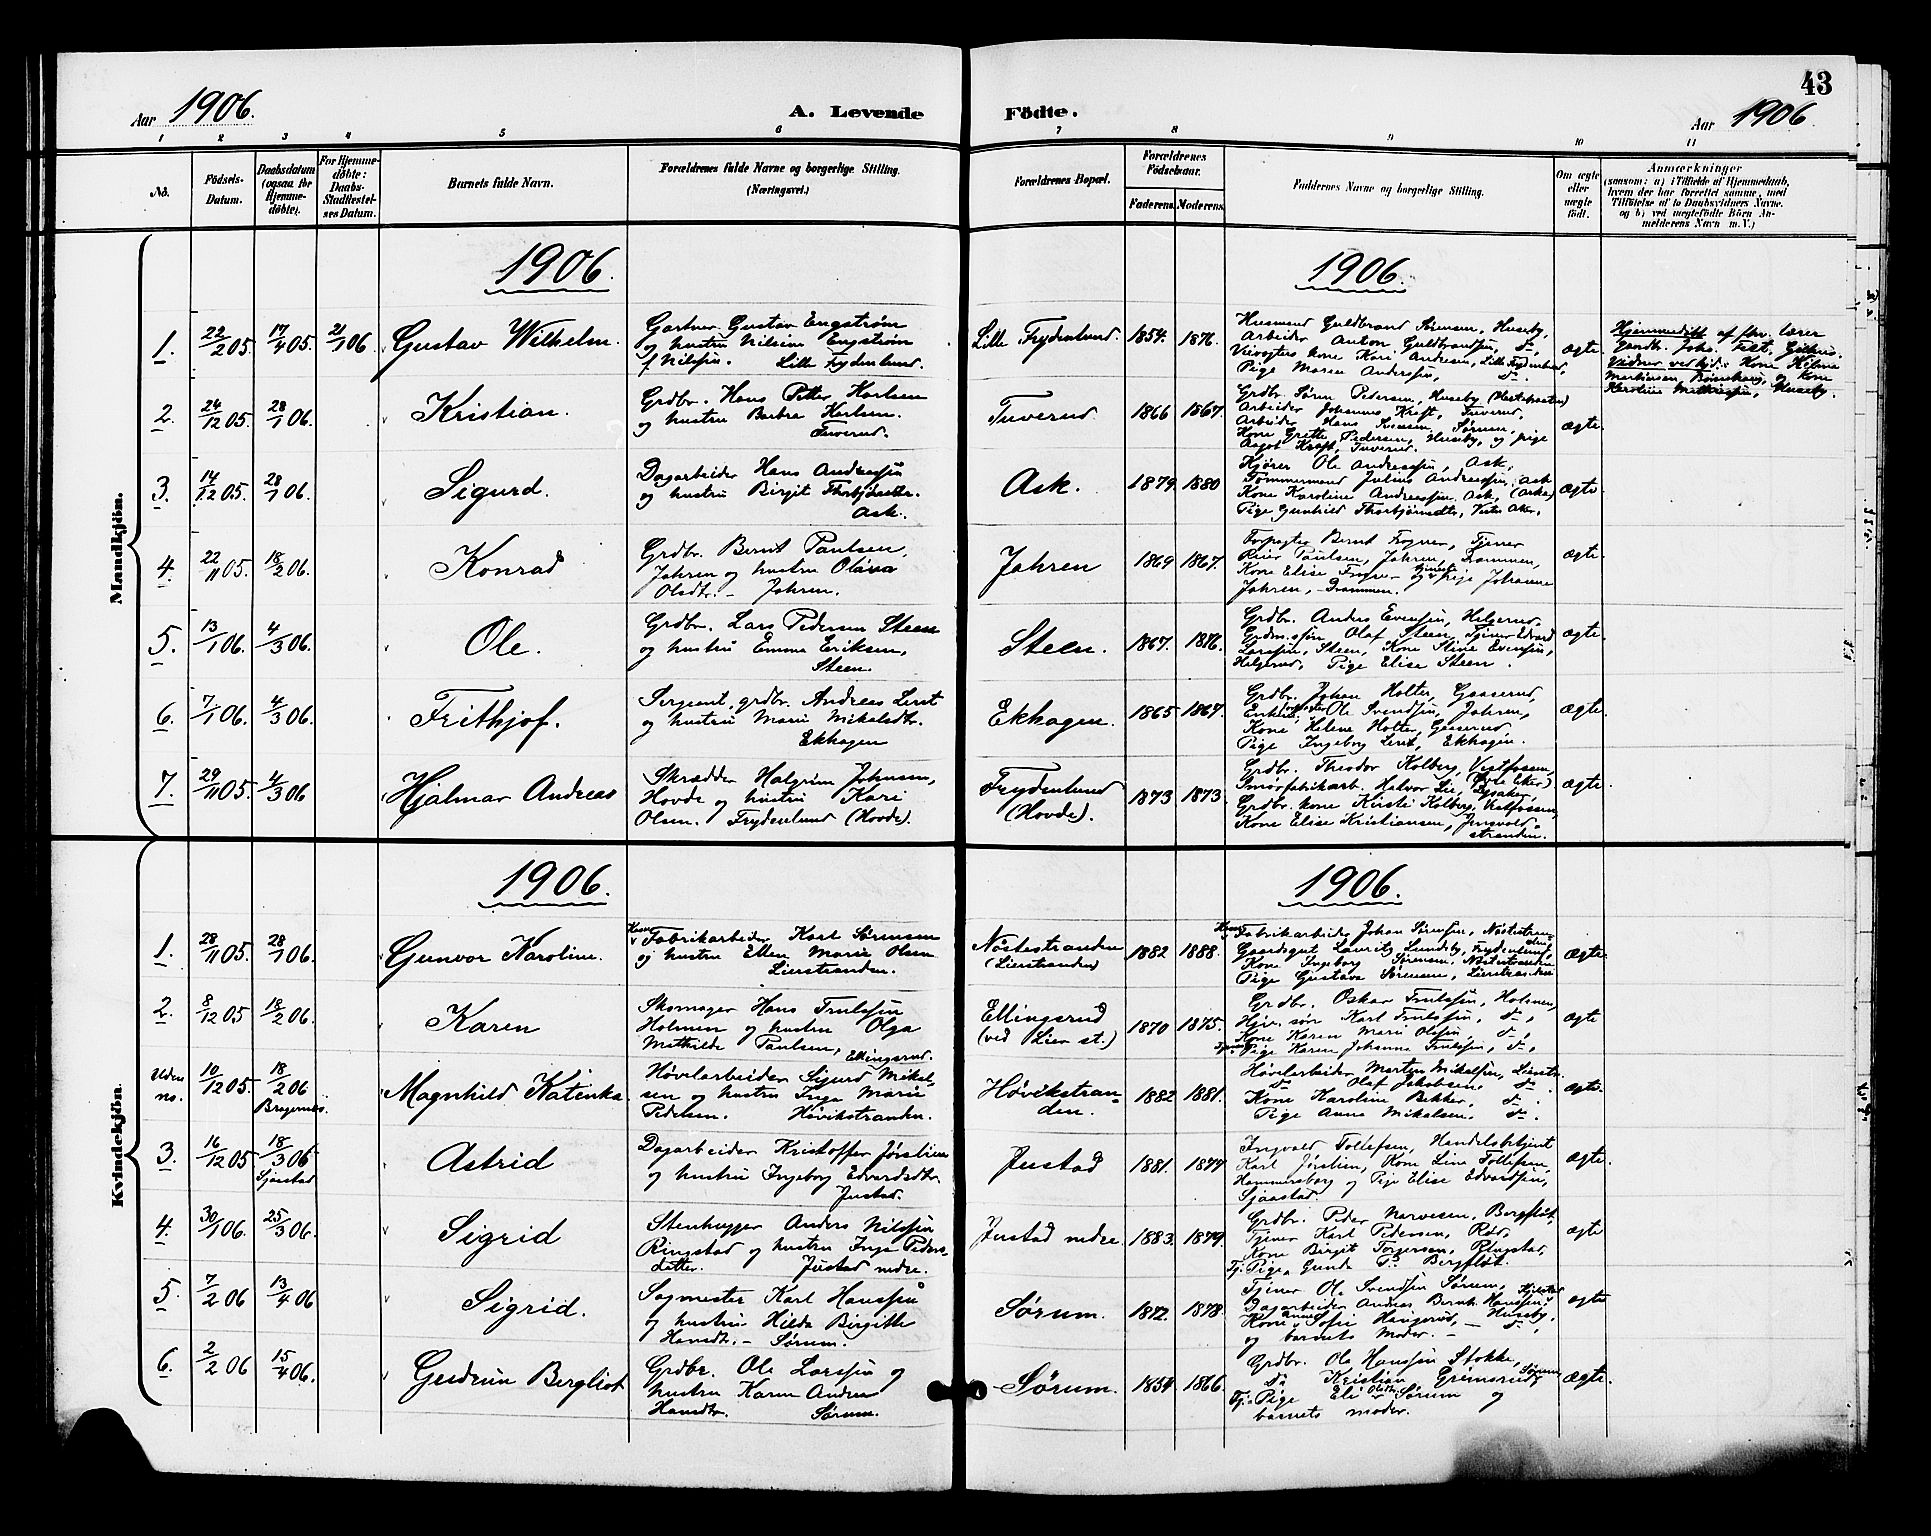 43
Aar 1906.
A. Levende Födte.
Aar 1906.
1 2 3 4 5 6 7 8 9 10 11
No.
Födsels-Datum.
Daabsdatum (ogsaa for Hjemmedöbte).
For Hjemmedöbte: Daabs-Stadfæstelses Datum.
Barnets fulde Navn.
Forældrenes fulde Navne og borgerlige Stilling.
(Næringsvei.)
Forældrenes Bopæl.
Forældrenes Födselsaar.
Faderens. Moderens.
Faddernes Navne og borgerlige Stilling.
Om ægte eller uægte födt.
Anmærkninger
(saasom: a) i Tilfælde af Hjemmedaab,
hvem der har forrettet samme, med
Tilföielse af to Daabsvidners Navne.
og b) ved uægtefödte Börn An-
melderens Navn m. V.)
Mandkjön.
1906. 1906.
1. 22/2 05. 17/4 05. 21/1 06 Gustav Wilhelm.
Gartner Gustav Engstrøm
og hustru Nilsine Engstrøm
f. Nilssen. Lille Frydenlund.
Lille Frydenlund 1854. 1876.
Husmand Guldbrand Sørensen, Huseby,
Arbeider Anton Guldbrandsen, do,
Kone Kari Andresen, Lille Frydenlund,
Pige Maren Anderssen, do.
ægte.
Hjemmedøbt af fhv. lærer
Vidner ved hjd.: Kone Helene
2. 24/12 05. 28/1 06. Kristian.
Grdbr. Hans Petter Karlsen
og hustru Barbra Karlsen.
Tuverud.
Tuverud. 1866 1867.
Grdbr. Søren Pedersen, Huseby
Arbeider Johannes Kraft, Tuverud,
Arbeider Hans Sørum,
Kone Grethe Pedersen, Huseby, og pige
Aagot Kraft, Tuverud.
ægte.
3. 14/12 05. 28/1 06. Sigurd.
Dagarbeider Hans Andreassen
og hustru Birgit Thorbjørnsdtr.
Ask.
Ask. 1879 1880
Kjører Ole Andreassen, Ask,
Tømmermand Julius Andreassen, Ask
Kone Karoline Andreassen, Ask,
Pige Gunhild Thorbjørnsdtr, Vestre Aker.
ægte.
4. 22/11 05. 18/2 06. Konrad
Grdbr. Bernt Paulsen,
Jahren og hustru Olava
Olsdtr. – Jahren.
Jahren 1869 1867.
Forpagter Bernt Fogner, Tjener
Reier Paulsen, Jahren, Drammen,
Kone Elise og pige Johanne
Jahren, – Drammen.
ægte
5. 13/1 06. 4/3 06. Ole.
Grdbr. Lars Pedersen Steen
og hustru Emma Eriksen,
Steen.
Steen. 1867. 1876.
Grdbr. Anders Evensen, Helgerud,
Grdm.søn Olaf Steen, Tjener Edvard
Larssen, Steen, Kone Stine Evensen,
Helgerud, Pige Elise Steen.
ægte.
6. 7/1 06. 4/3 06. Frithjof.
Sergeant, grdbr. Andreas Lerst
og hustru Marie Mikelsdtr.
Ekhagen
Ekhagen. 1865 1867.
Grdbr. Johan Holter, Gaaserud,
Ole Svendsen, Jahren,
Kone Helene Holter, Gaaserud
Pige Ingeborg Lerst, Ekhagen.
ægte.
7. 29/11 05. 4/3 06 Hjalmar Andreas
Skrædder Halgrim Johnsen,
Hovde og hustru Kari
Olsen. Frydenlund (Hovde).
Frydenlund
(Hovde). 1873 1873.
Grdbr. Theodor Kolberg, Vestfossen,
(Øvre Eker)
Smørfabrikarb. Halvor Lie, Lysaker,
Grdbr. kone Kirsti Kolberg, Vestfossen,
Kone Elise Kristiansen,
stranden.
ægte.
Kvindekjön.
1906. 1906.
1. 28/11 05. 28/1 06. Gunvor Karoline.
Fabrikarbeider Karl Sørensen
og hustru Ellen Marie Olsen
Lierstranden.
Nøstestranden
(Lierstranden) 1882 1888.
Fabrikarbeider Johan Sørensen, Nøstestranden,
Gaardsgut Lauritz Lundeby, Frydenlund,
Kone Ingeborg Sørensen, Nøstestranden
Pige Gustava Sørensen, Lierstranden
ægte.
2. 8/12 05 18/2 06. Karen
Skomager Hans Trulssen
Holmen og hustru Olga
Mathilde Paulsen, Ellingsrud.
Ellingsrud
(ved Lier st.) 1870 1875.
Grdbr. Oskar Trulssen, Holmen,
søn Karl Trulssen, do,
Kone Karen Marie Olssen, do,
Pige Karen Johanne Trulssen, do,
ægte
Uden no. 10/12 05. 18/2 06 Bragernes. Magnhild Katinka
Høvlarbeider Sigurd Mikel-
sen og hustru Inga Marie
Pedersen. Høvikstranden.
Høvikstran-
den. 1882 1881.
Høvlarbeider Morten Mikelsen, Lierstr.
do Olaf Jakobsen, do.
Kone Karoline Bekker, do.
Pige Anna Mikelsen, do.
ægte.
3. 16/12 05 18/3 06 Sjaastad Astrid
Dagarbeider Kristoffer Jørstien
og hustru Ingeborg Edvardsdtr.
Justad.
Justad 1881. 1877.
Ingvald Tollefsen, Handelsbetjent
Karl Jørstien, Kone Line Tollefsen,
Hammersborg og Pige Elise Edvardsen,
Sjaastad.
ægte.
4. 30/1 06. 25/3 06. Sigrid
Stenhugger Anders Nilssen
Ringstad og hustru Inga Peders-
datter. Justad nedre.
Justad nedre. 1883. 1879.
Grdbr. Peder Narvesen, Bergfløt,
Tjener Karl Pedersen, Rør,
Kone Birgit Torgersen, Ringstad,
Tj. Pige Gunda Bergfløt.
ægte
5. 7/2 06 13/4 06 Sigrid.
Sagmester Karl Hanssen
og hustru Hilda Birgitte
Hansdtr. – Sørum.
Sørum. 1872. 1878.
Tjener Ole Svendsen Sørum,
Dagarbeider Andreas Bernh. Hanssen,
Kone Sofie Haugerud, – Huseby,
og barnets moder. –
ægte
6. 2/2 06 15/4 06. Gudrun Bergliot
Grdbr. Ole Larssen og
hustru Karen Andrea
Hansdtr. Sørum.
Sørum. 1854 1866.
Grdbr. Ole Hanssen Stokke,
do Kristian Grimsrud, Sørum,
Tj. Pige Eli Olsdtr. Sørum og
barnets moder.
ægte.